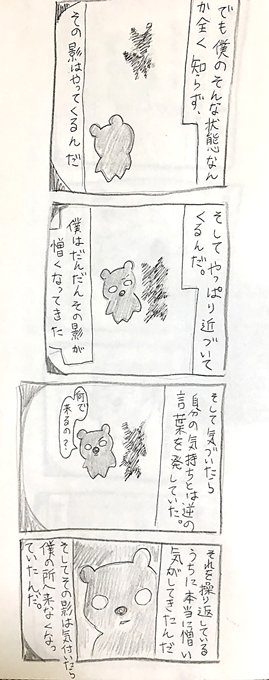 でも僕のそんな状態なん
か全く知らず、
その影はやってくるんだ
そしてやっぱり近づいて
くるんだ。
僕はだんだんその影が
憎くなってきた
そして気づいたら
自分の気持ちとは逆の
言葉を発していた。
何で
来るの?
それを繰り返している
うちに本当に憎い
気がしてきたんだ
そしてその影は気付いたら
僕の所へ来なくなっ
ていたんだ。